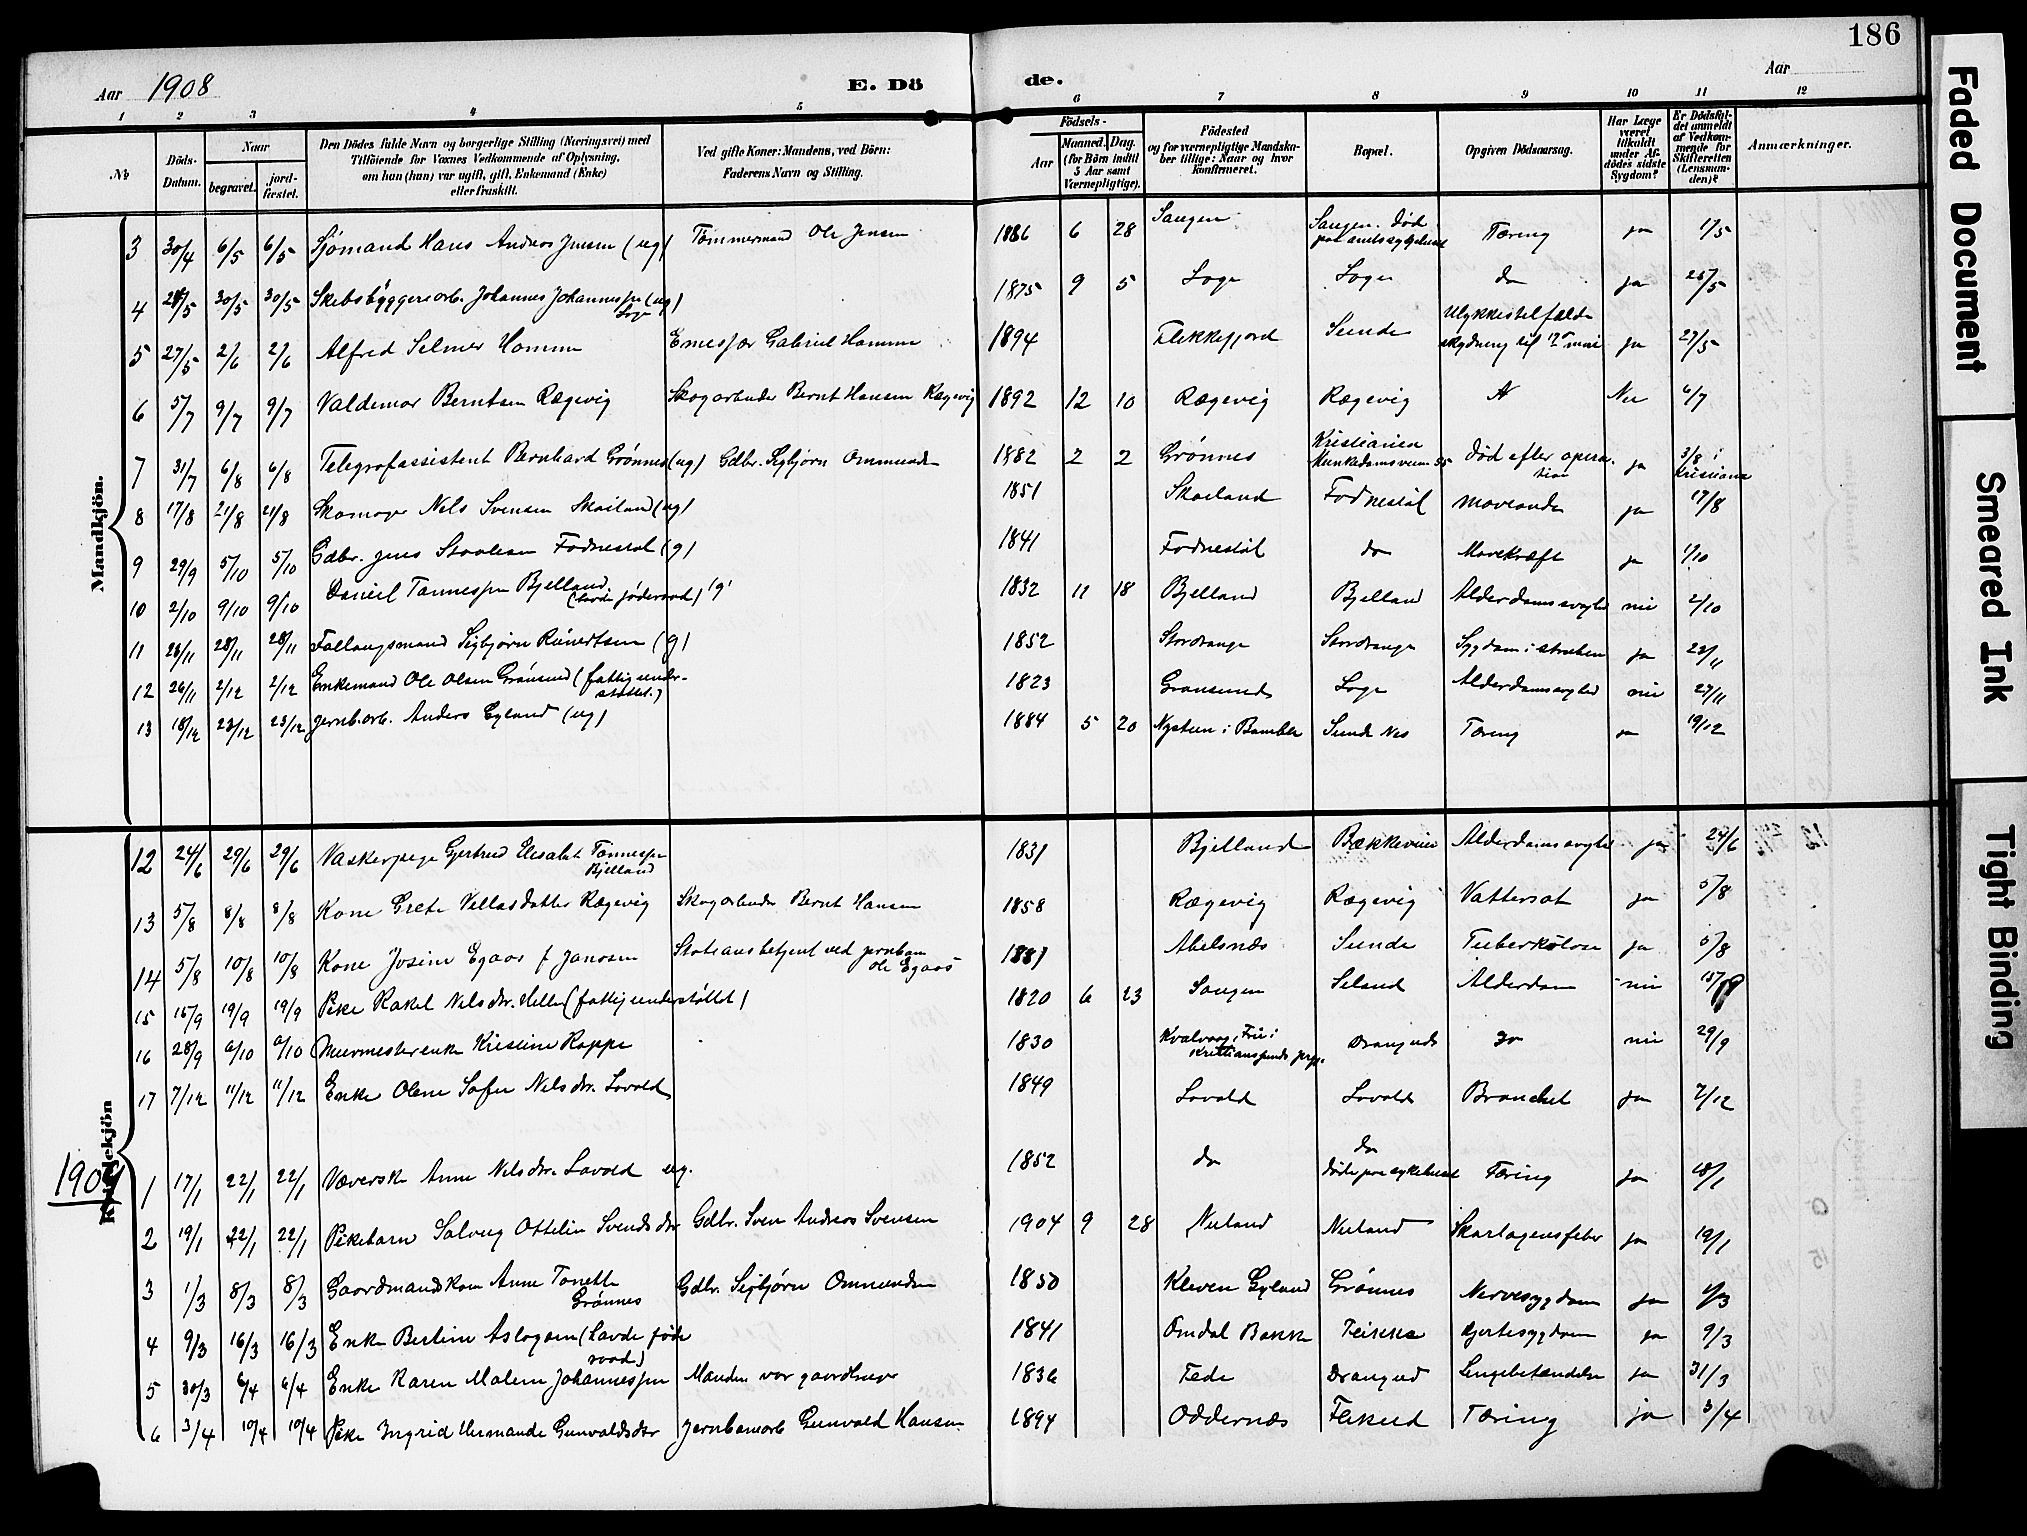 186
Aar 1908
E. Dö
de.
Aar
1 2 3 4 5 6 7 8 9 10 11 12
No
Döds-Datum.
Naar
begravet.
jord-fæstet.
Den Dödes fulde Navn og borgerlige Stilling (Næringsvei) med
Tilföiende for Voxnes Vedkommende af Oplysning,
om han (hun) var ugift, gift, Enkemand (Enke)
eller fraskilt.
Ved gifte Koner: Mandens, ved Börn:
Faderens Navn og Stilling.
Födsels-
Aar
Maaned. Dag.
(for Börn indtil
5 Aar samt
Værnepligtige).
Födested
og for værnepligtige Mandska-
ber tillige: Naar og hvor
konfirmeret.
Bopæl.
Opgiven Dödsaarsag.
Har Læge
været
tilkaldt
under Af-
dödes sidste
Sygdom?
Er Dödsfal-
det anmeldt
af Vedkom-
mende for
Skifteretten
(Lensman-
den)?
Anmærkninger.
Mandkjön.
3 30/4 6/5 6/5 Sjömand Hans Andreas Jensen (ug) Tømmermand Ole Jensen 1886 6 28 Saugen Saugen. Død paa amtssygehuset Tæring ja 1/5
4 5 30/5 30/5 Skibsbyggerarb. Johannes Johannessen (ug) Loge 1875 9 5 Loge Loge do ja 25/5
5 27/5 2/6 2/6 Alfred Selmer Homme Gabriel Homme 1894 Flekkefjord Sunde Ulykkestilfælde ja 27/5
6 5/7 9/7 9/7 Valdemar Berntsen Rægevig Skogarbeider Bernt Hansen Rægevig 1892 12 10 Rægevig Rægevig Nei 6/7
7 31/7 6/8 6/8 Telegrafassistent Bernhard Grønnes (ug) Gdbr. Sigbjørn Ommundsen 1882 2 2 Grønnes Kristiania Munkedamsveien 35 Død efter opera-tion ja 3/8 i Kristiania
8 17/8 21/8 21/8 Skomager Nils Svensen Skailand (ug) 1851 Skailand Fodnestøl maveonde ja 17/8
9 29/9 5/10 5/10 Gdbr. Jens Staalesen Fodnestøl (g) 1841 Fodnestøl do Mavekræft ja 1/10
10 2/10 9/10 9/10 Daniel Tønnessen Bjelland (g) 1832 11 18 Bjelland Bjelland Alderdomssvaghed nei 2/10
11 11 28/11 28/11 Sigbjørn Reinertsen (g) 1852 Stordrange Stordrange Sygdom i struben ja 23/11
12 26/11 2/12 2/12 Enkemand Ole Olsen Grønsund (fattigunder-støttet.) 1823 Grønsund Loge Alderdomssvaghed nei 27/11
13 18/12 23/12 23/12 Jernb.arb. Anders Eyland (ug) 1884 5 20 Nysteen i Bamble Sunde Nes Tæring ja 19/12
Kvindekjön
12 24/6 29/6 29/6 Vaskerpige Gjertrud Elisabet Tønnessen Bjelland 1831 Bjelland Bækkeveien Alderdomssvaghed ja 24/6
13 5/8 8/8 8/8 Kone Grete Vellasdatter Rægevig Skogarbeider Bernt Hansen 1858 Rægevig Rægevig Vattersot ja 5/8
14 5/8 10/8 10/8 Kone Josine Egaas f Janssen ved jernban Ole Egaas 1881 Abelsnæs Sunde Tuberkulose ja 5/8
15 15/9 19/9 19/9 Pike Rakel Nilsdtr. Helle (fattigunderstøttet) 1820 6 23 Saugen Seland Alderdom nei 15/9
16 28/9 6/10 6/10 Murmesterenke Kristine Rappe 1830 i Kristianssunds prgj. Drangeid do nei 29/9
17 7/12 11/12 11/12 Enke Olene Sofie Nilsdtr. Lavold 1849 Lavold Lavold Bronchit ja 7/12
1909
1 17/1 22/1 22/1 Væverske Anne Nilsdtr. Lavold ug. 1852 do do Døde paa sykehuset Tæring ja 18/1
2 19/1 22/1 22/1 Pikebarn Solveig Ottelin Svendsdtr Gdbr. Sven Andreas Svensen 1904 9 28 Nuland Nuland Skarlagensfeber ja 19/1
3 1/3 8/3 8/3 Gaardmandskone Anne Tonette Grønnes Gdbr. Sigbjørn Ommundsen 1850 Kleven Gyland Grønnes Nervesygdom ja 1/3
4 9/3 16/3 16/3 Enke Bertine Aslagsen (Lavde føde raad) 1841 Omdal Bakke Feikka Hjertesygdom ja 9/3
5 30/3 6/4 6/4 Enke Karen Malene Johannessen Manden var gaardbruger 1836 Fede Drangeid Lungebetændelse ja 31/3
6 3/4 10/4 10/4 Pike Ingrid Hermande Gunvaldsdtr Jernbanearb Gunvald Hansen 1894 Oddernæs Flikeid Tæring ja 3/4
Faded Document
Smeared Ink
Tight Binding